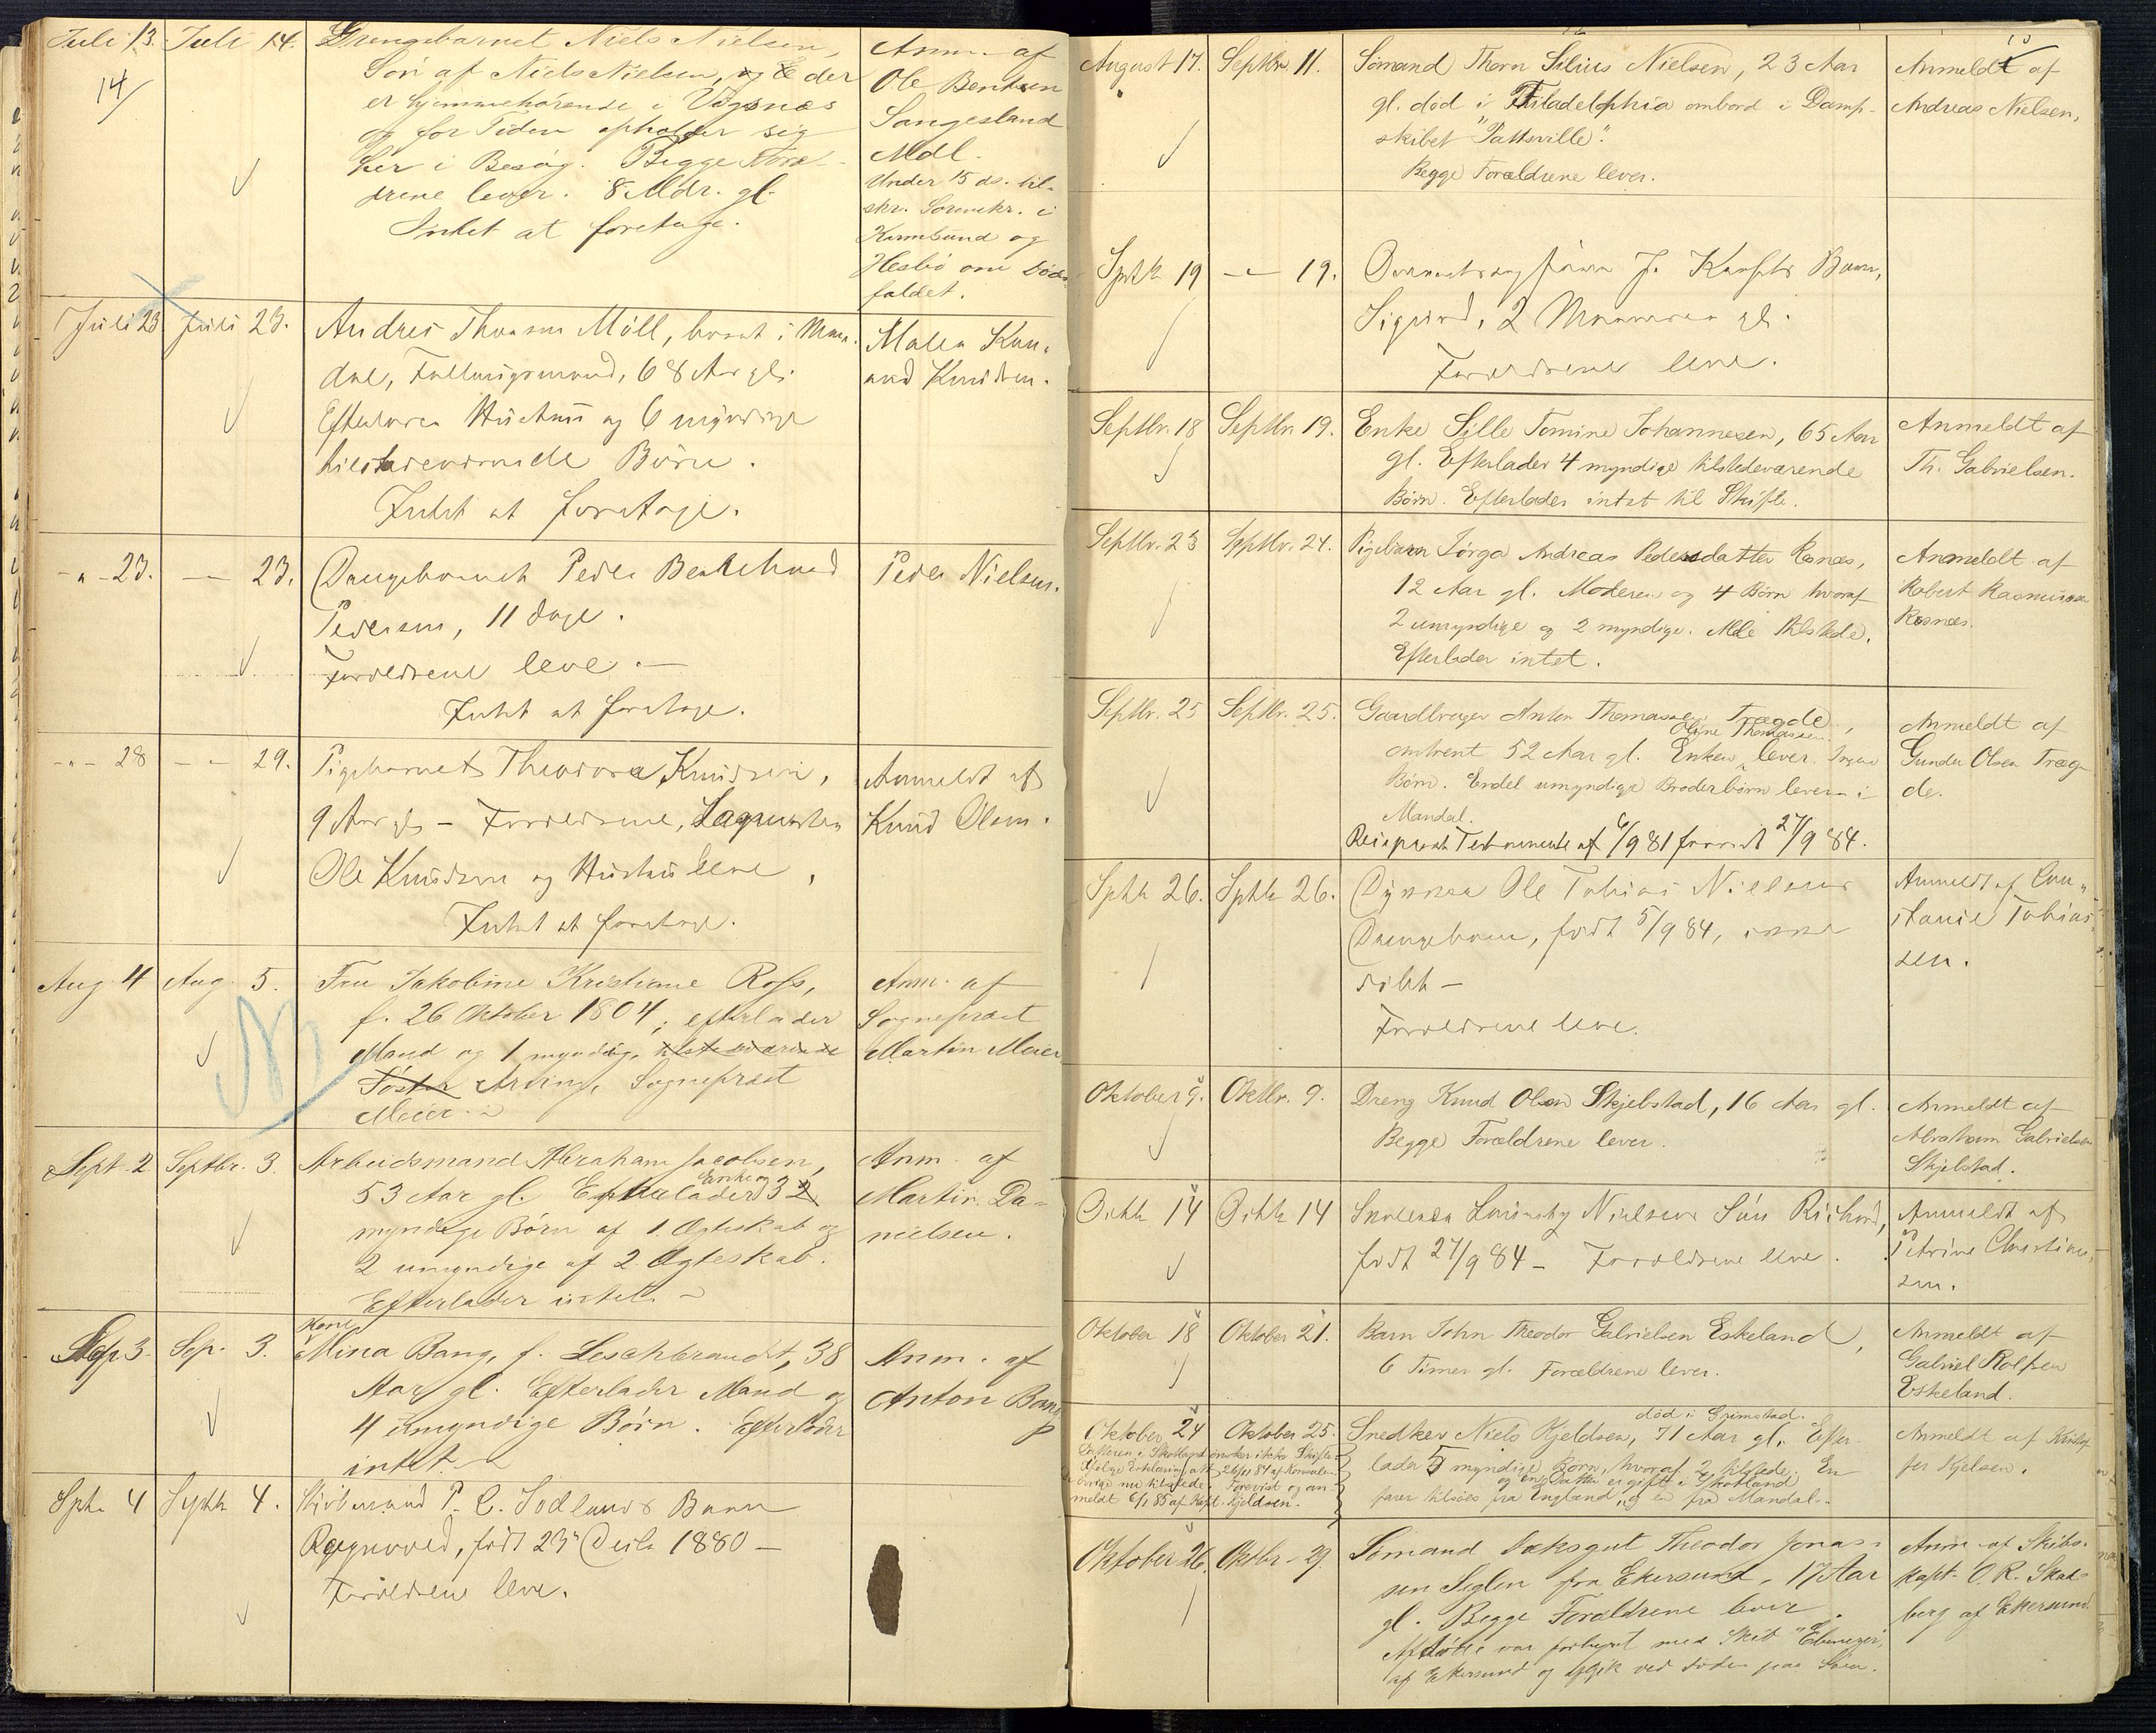 Juli 13. Juli 14. Drengebarnet Niels Nielsen, Anm. af
14/ Søn af Niels Nielsen, der Ole Bentsen
er hjemmehørende i Vågsnæs Sangesland
og for Tiden opholder sig Mdl.
her i Besøg. Begge Foræl- Under 15 ds. til-
drene lever. 8 Mdr. gl. skr. Sorenskr. i
Intet at foretage. Karmsund og
Hesbö om Døds-
faldet.
Juli 23 Juli 23. Andres Thomsen Möll, boset i Man- Malea Knu-
dal, Fattigmand, 68 Aar gl. Knudsen.
Efterlader Hustru og 6 myndige
tilstedeværende Børn.
Intet at foretage.
-"- 23. -"- 23. Drengebarnet Peder Pedersen, 11 Dage. Peder Nielsen.
Forældrene leve. —
Intet at foretage.
-"- 28 -"- 29. Pigebarnet Theodora Knudsen, Anmeldt af
9 Aar gl. — Forældrene, Knud Olsen.
Ole Knudsen og Hustru leve,
Intet at foretage.
Aug. 4 Aug. 5. Fru Jakobine Kristiane Ross, Anm. af
f. 26 Oktober 1804; efterlader Sognepræst
Mand og 1 myndig, tilstedeværende Martin Meier
Søster Arving, Sognepræst
Meier.
Sept. 2 Septbr. 3. Arbeidsmand Abraham Jacobsen, Anm. af
53 Aar gl. Efterlader Enke og 3 2 Martin Da-
myndige Børn af 1. Ægteskab og nielsen.
2 umyndige af 2 Ægteskab.
Efterlader intet.
Sep. 3. Sep. 3. Kone
Mina Bang, f. Leschbrandt, 38 Anm. af
Aar gl. Efterlader Mand og Anton Bang
4 umyndige Børn. Efterlader
intet
Sptb. 4 Septb. 4. P. C. Sodlands Barn
Ragnvald, født 23 1880 —
Forældrene leve.
August 17. Septbr 11. Sømand Thorn Silius Nielsen, 23 Aar Anmeldt af
gl. død i Filadelphia ombord i Damp- Andreas Nielsen.
skibet "Pattsville".
Begge Forældrene lever.
Septb 19 -"- 19. J. Barn,
Sigurd, 2 Maaneder gl.
Forældrene leve.
Septbr. 18 Septbr. 19. Enke Sille Tomine Johannesen, 65 Aar Anmeldt af
gl. Efterlader 4 myndige tilstedeværende Th. Gabrielsen.
Børn. Efterlader intet til Skifte.
Septbr. 23 Septbr. 24. Pigebarn Jørga Andreas Pedersdatter Rosnæs, Anmeldt af
12 Aar gl. Moderen og 4 Børn hvoraf Robert Rasmussen
2 umyndige og 2 myndige. Alle tilstede. Rosnæs.
Efterlader intet.
Septbr. 25 Septbr. 25. Gaardbruger Anton Thomassen Trægde, Anmeldt af
Oline Thomassen
omtrent 52 Aar gl. Enken lever. Ingen Gunder Olsen Træg-
Børn. Endel umyndige Broderbørn lever i de.
Mandal.
Reciprokt Testamente af 6/9 81 forevist 27/9 84.
Septb 26. Septb 26. Ole Tobias Nielsens Anmeldt af Con-
Drengebarn, født 5/9 84, ikke stanse Tobias-
døbt — sen.
Forældrene leve.
Oktober 9. Oktbr. 9. Dreng Knud Olsen Skjebstad, 16 Aar gl. Anmeldt af
Begge Forældrene lever. Abraham Gabrielsen
Skjebstad.
Octb 14 Octb 14 Nielsens Søn Richard, Anmeldt af
født 27/9 84 — Forældrene leve. Petrine Christian-
sen.
Oktober 18 Oktober 21. Barn John Theodor Gabrielsen Eskeland, Anmeldt af
6 Timer gl. Forældrene lever. Gabriel Rolfsen
Eskeland.
død i Grimstad.
Oktober 24 Oktober 25. Snedker Niels Kjeldsen, 71 Aar gl. Efter- Anmeldt af Kristof-
lader 5 myndige Børn, hvoraf 2 tilstede. En fer Kjelsen.
og en Datter er gift i Skotland
farer tilsøes fra England, og en fra Mandal.
Datteren i Skotland ønsker ikke Skifte
ifølge Erklæring att. 26/11 84 af Konsulen
øvrige nu tilstede. Forevist og an-
meldt 6/1 85 af Kapt. Kjeldsen.
Oktober 26. Oktbr. 29. Sømand Dæksgut Theodor Jonas- Anm. af Skibs-
sen Seglen fra Ekersund, 17 Aar kapt. O. R. Skad-
gl. Begge Forældrene lever. berg af Ekersund.
Afdøde var forhyret med Skib "Ebenezer"
af Ekersund og afgik ved Døden paa Søen.